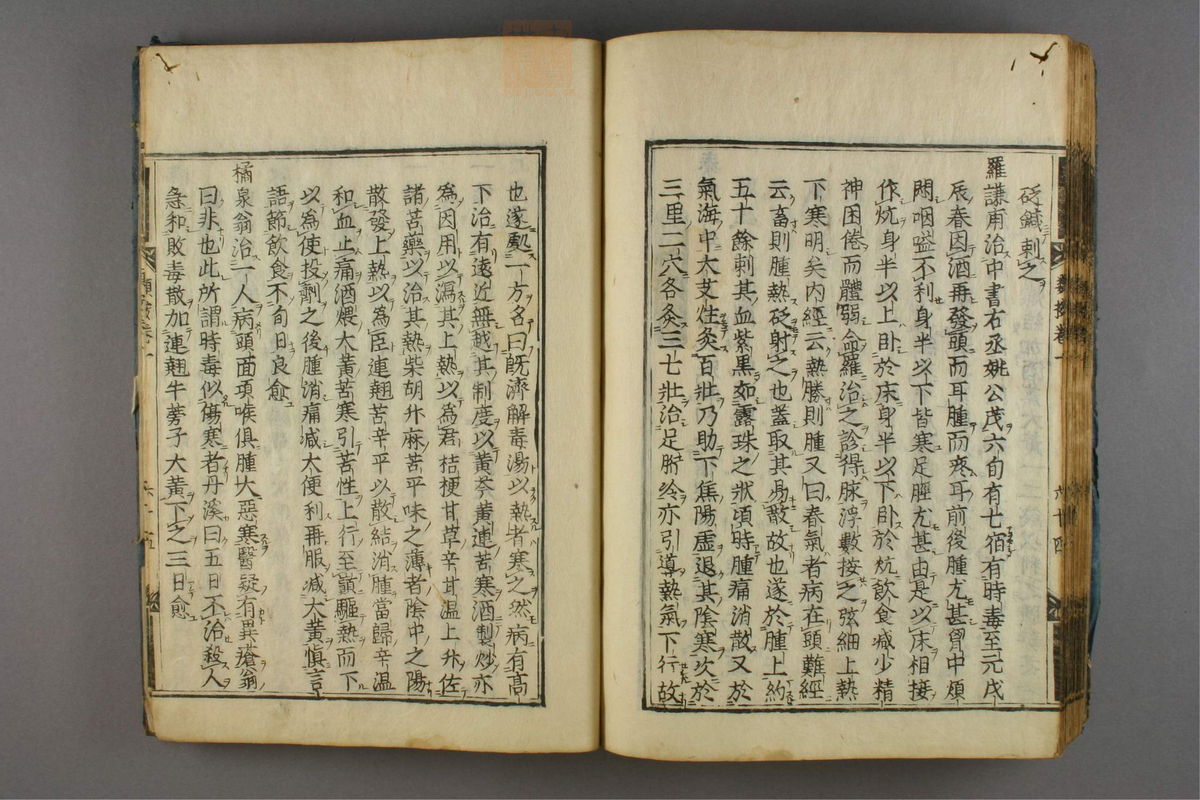 砭鍼刺之
羅謙甫治中書右丞姚公茂六旬有七宿有時毒至元戊
辰春因酒再發頭而耳腫而疼耳前後腫尤甚胷中煩
悶咽嗌不利身半以下皆寒足脛尤甚由是以床相接
作炕身半以上卧於床身半以下卧於炕飲食减少精
神困倦而體弱命羅治之診得脉浮數按之弦細上熱
下寒明矣内經云熱勝則腫又曰春氣者病在頭難經
云畜則腫熱砭射之也盖取其易散故也遂於腫上約
五十餘刺其血紫黒如露珠之狀頃時腫痛消散又於
氣海中大艾炷灸百壯乃助下焦陽虚退其陰寒次於
三里二穴各灸三七壯治足䯒冷亦引導熱氣下行故
也遂處一方名曰既濟解毒湯以熱者寒之然病有髙
下治有遠近無越其制度以黄芩黄連苦寒酒製炒亦
為因用以瀉其上熱以為君桔梗甘草辛甘温上升佐
諸苦藥以治其熱柴胡升麻苦平味之薄者陰中之陽
散發上熱以為臣連翹苦辛平以散結消腫當歸辛温
和血止痛酒煨大黄苦寒引苦性上行至巓驅熱而下
以為使投劑之後腫消痛减大便利再服减大黄愼言
語節飲食不旬日良愈
橘泉翁治一人病頭面項喉俱腫大惡寒醫疑有異瘡翁
曰非也此所謂時毒似傷寒者丹溪曰五日不治殺人
急和敗毒散加連翹牛蒡子大黄下之三日愈
六十四
六十五